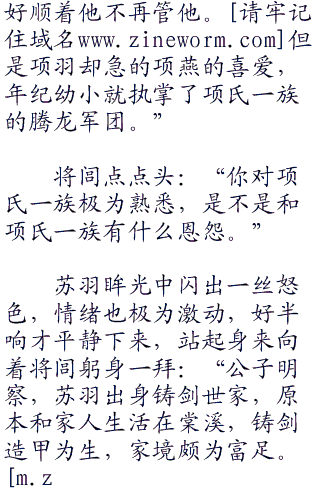 好顺着他不再管他。[请牢记
住域名www.zineworm.com]但
是项羽却急的项燕的喜爱，
年纪幼小就执掌了项氏一族
的腾龙军团。”
将闾点点头：“你对项
氏一族极为熟悉，是不是和
项氏一族有什么恩怨。”
苏羽眸光中闪出一丝怒
色，情绪也极为激动，好半
响才平静下来，站起身来向
着将闾躬身一拜：“公子明
察，苏羽出身铸剑世家，原
本和家人生活在棠溪，铸剑
造甲为生，家境颇为富足。
[m.z